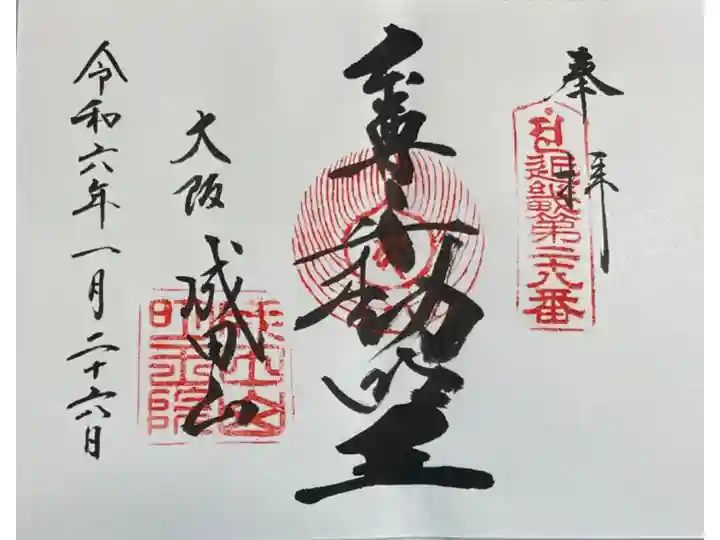 奉拝
近畿第二六番
尊不動堂
大阪 成田山
令和六年一月二十六日